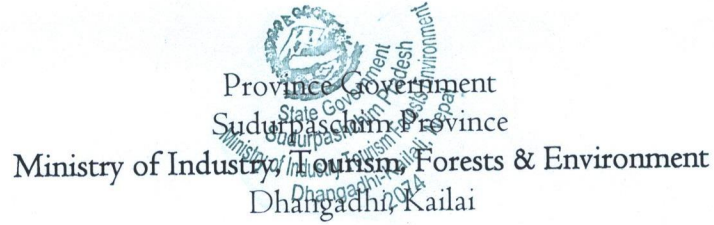 Province Government
Sudurpaschim Province
Ministry of Industry, Tourism, Forests & Environment
Dhangadhi, Kailai
State Government
Sudurpashchim Pradesh
Ministry of Industry Tourism Forests Environment
Dhangadhi-Kailali, Nepal
2074